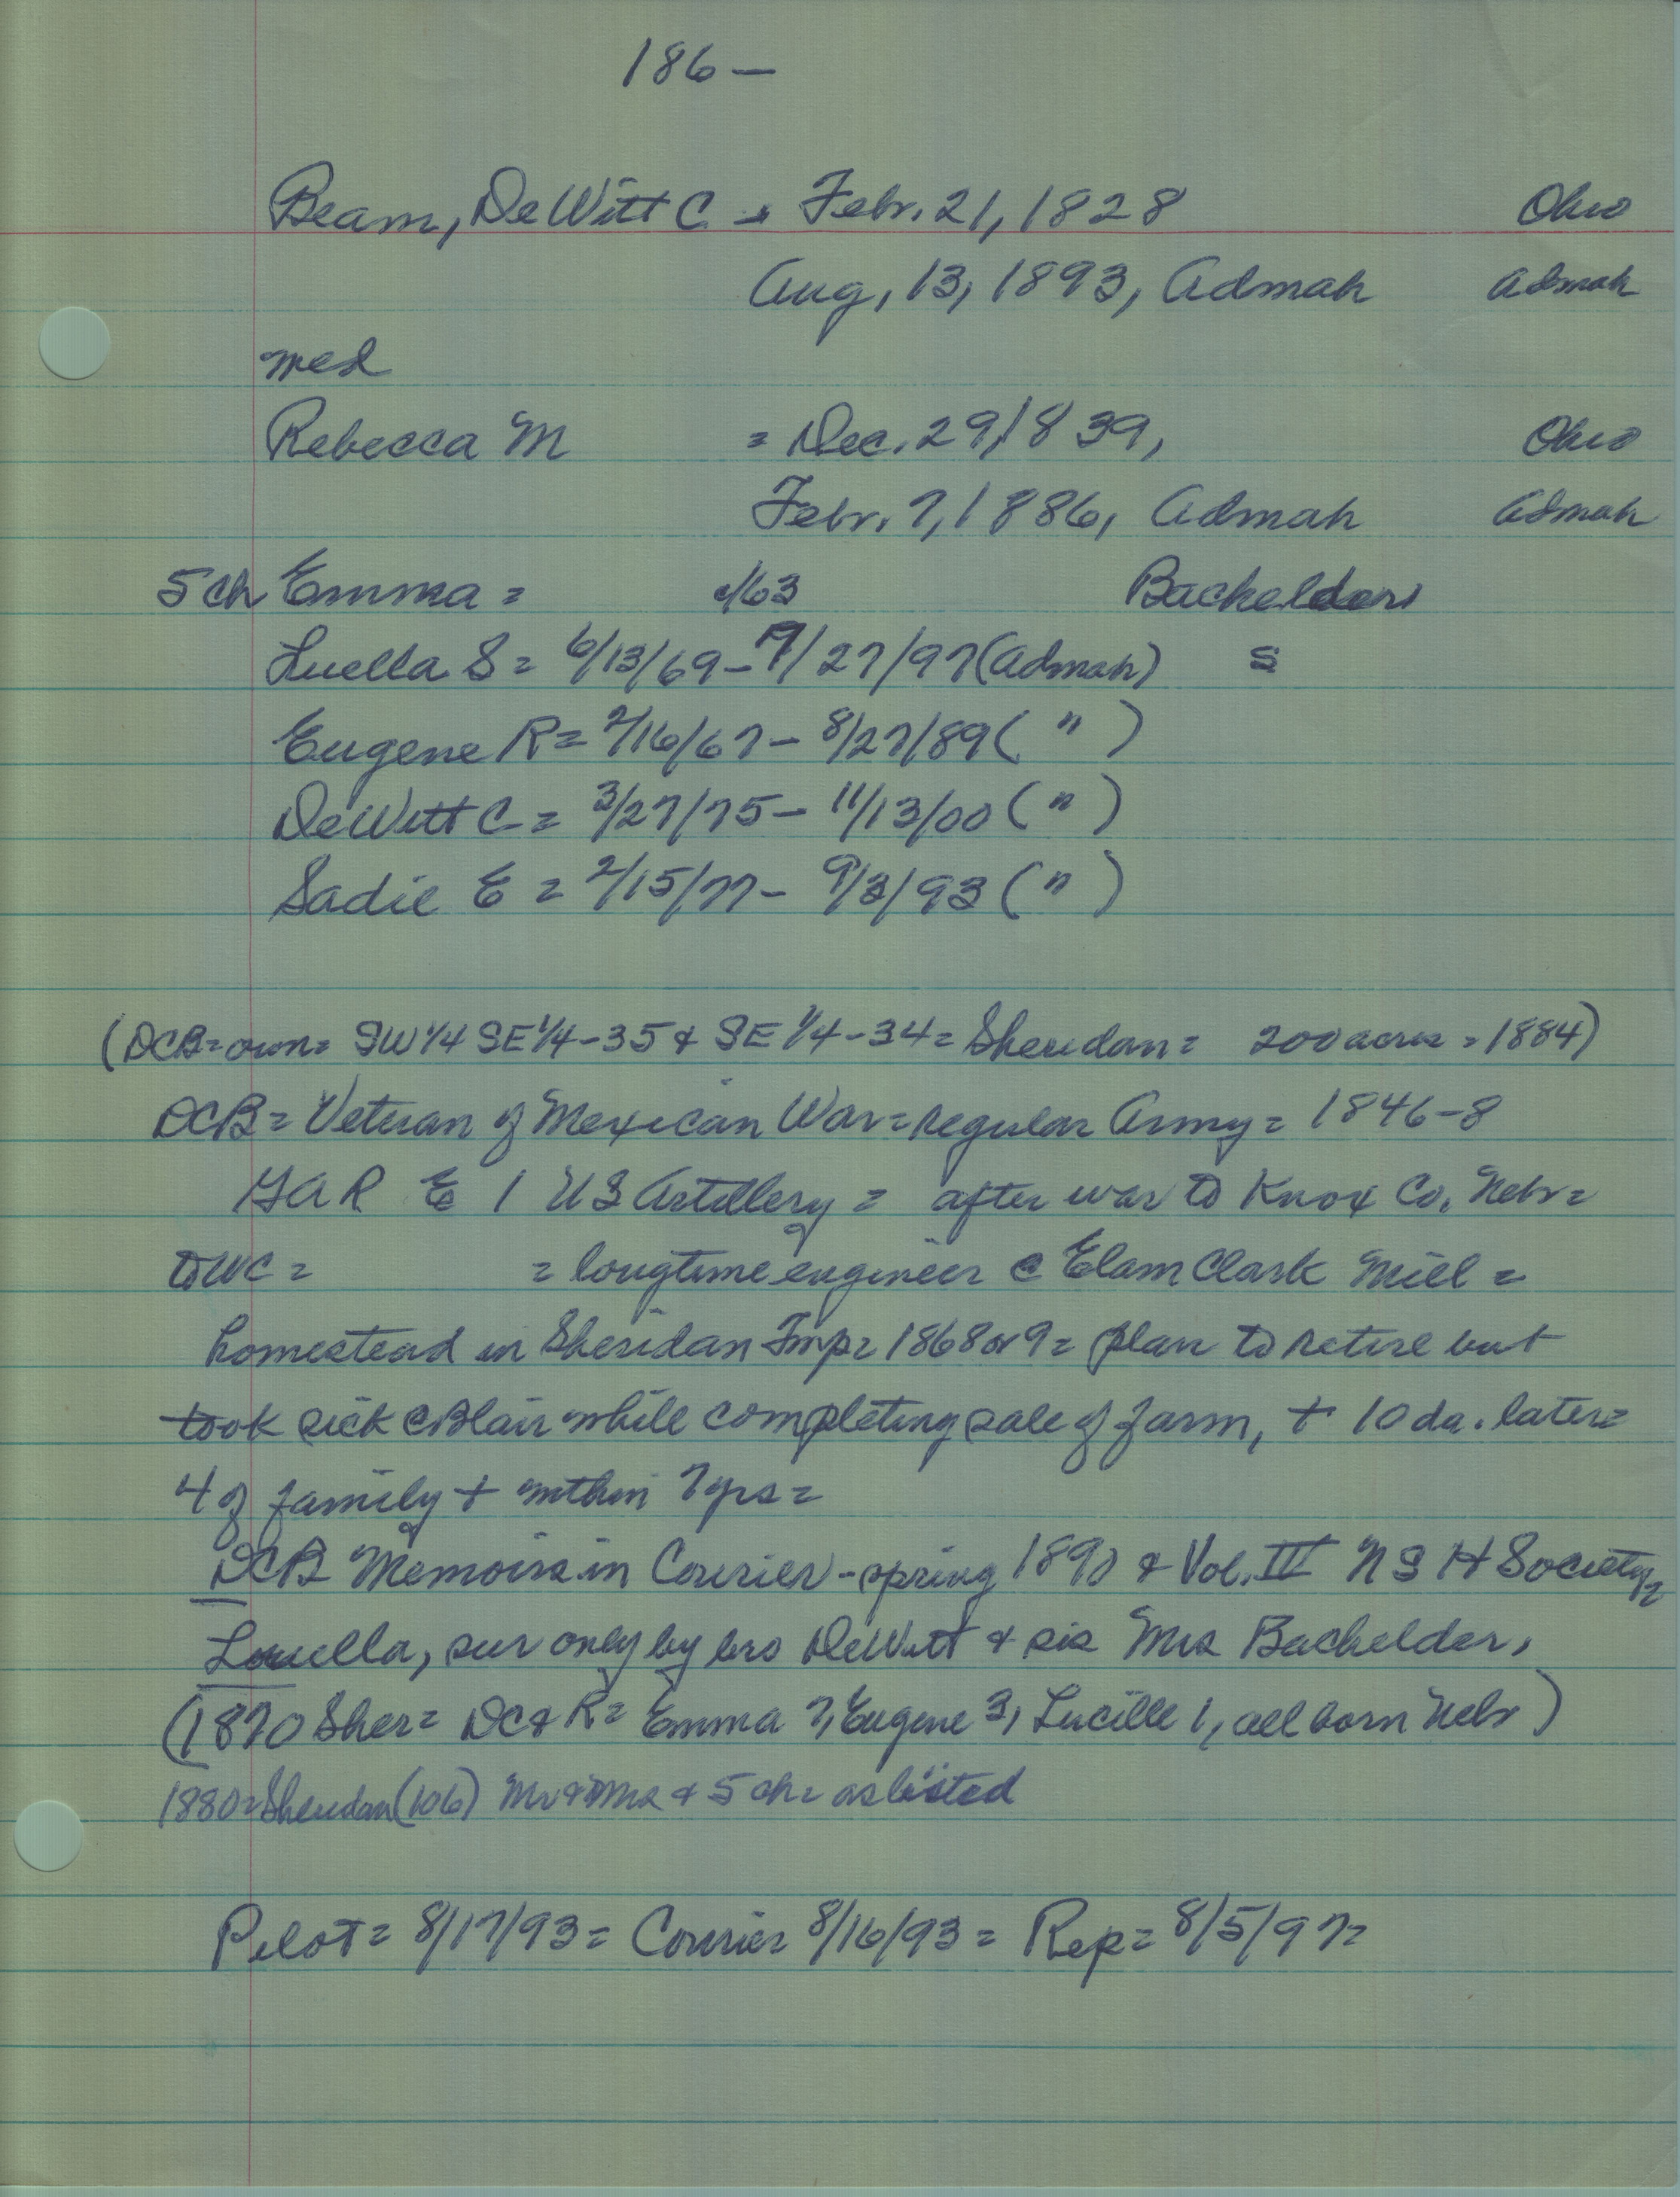 186—
Beam, DeWitt C - Febr. 21, 1828 Ohio
Aug, 13, 1893, Admah Admah
med
Rebecca M = Dec. 29, 1839, Ohio
Febr. 7, 1886, Admah Admah
5 ch Emma = c/63 Bachelder
Luella S = 6/13/69 - 7/27/97 (Admah) S
Eugene R = 2/16/67 - 8/27/89 ( " )
DeWitt C = 3/27/75 - 11/13/00 ( " )
Sadie E = 2/15/77 - 9/3/93 ( " )
(DCB = own = SW 1/4 SE 1/4 - 35 & SE 1/4 - 34 = Sheridan = 200 acres = 1884)
DCB = Veteran of Mexican War = regular Army = 1846-8
GAR E 1 US Artillery = after war to Knox Co. Nebr =
to WC = = longtime engineer @ Elam Clark Mill =
homestead in Sheridan Twp = 1868 or 9 = plan to retire but
took sick @ Blair while completing sale of farm, + 10 da. later =
4 of family + within 7 yrs =
DCB Memoirs in Courier - spring 1890 & Vol. III N S H Society =
Louella, sur only by bro DeWitt & sis Mrs Bachelder,
(1870 Sher = DC & R = Emma 7, Eugene 3, Lucille 1, all born Nebr)
1880 = Sheridan (106) Mr & Mrs & 5 ch = as listed
Pilot = 8/17/93 = Courier 8/16/93 = Rep = 8/5/97 =